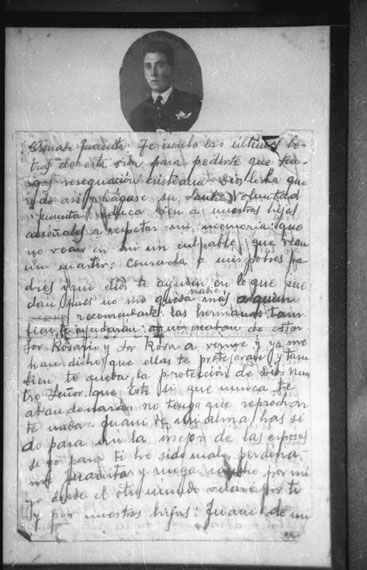 Juanita: Te escribo las últimas le-
tras de esta vida para pedirte que ten-
gas resignación cristiana. Dios lo ha que
rido así, hágase su Santa Voluntad
Juanita, a nuestros hijos
enséñales a respetar mi memoria, que
no vean en mi un culpable, que vean
un martir. Consuela a mis pobres pa
dres que ellos te ayuden en lo que pue
dan, pues no me queda nadie mas a quien
recomendarte. las hermanas tam
bien te ayudarán. de estar
Sor Rosario y Sor Rosa a verme y ya me
han dicho que ellas te protejeran y tam
bien te queda la protección de Dios Nues
tro Señor, que Este si que nunca te
abandonará. no tengo que reprochar
te nada. Juani de mi alma, has si
do para mi la mejor de las esposas
si yo para ti he sido malo perdona
me Juanita y ruega mucho por mi
desde el otro mundo velaré por ti
y por nuestros hijos. Juani de mi